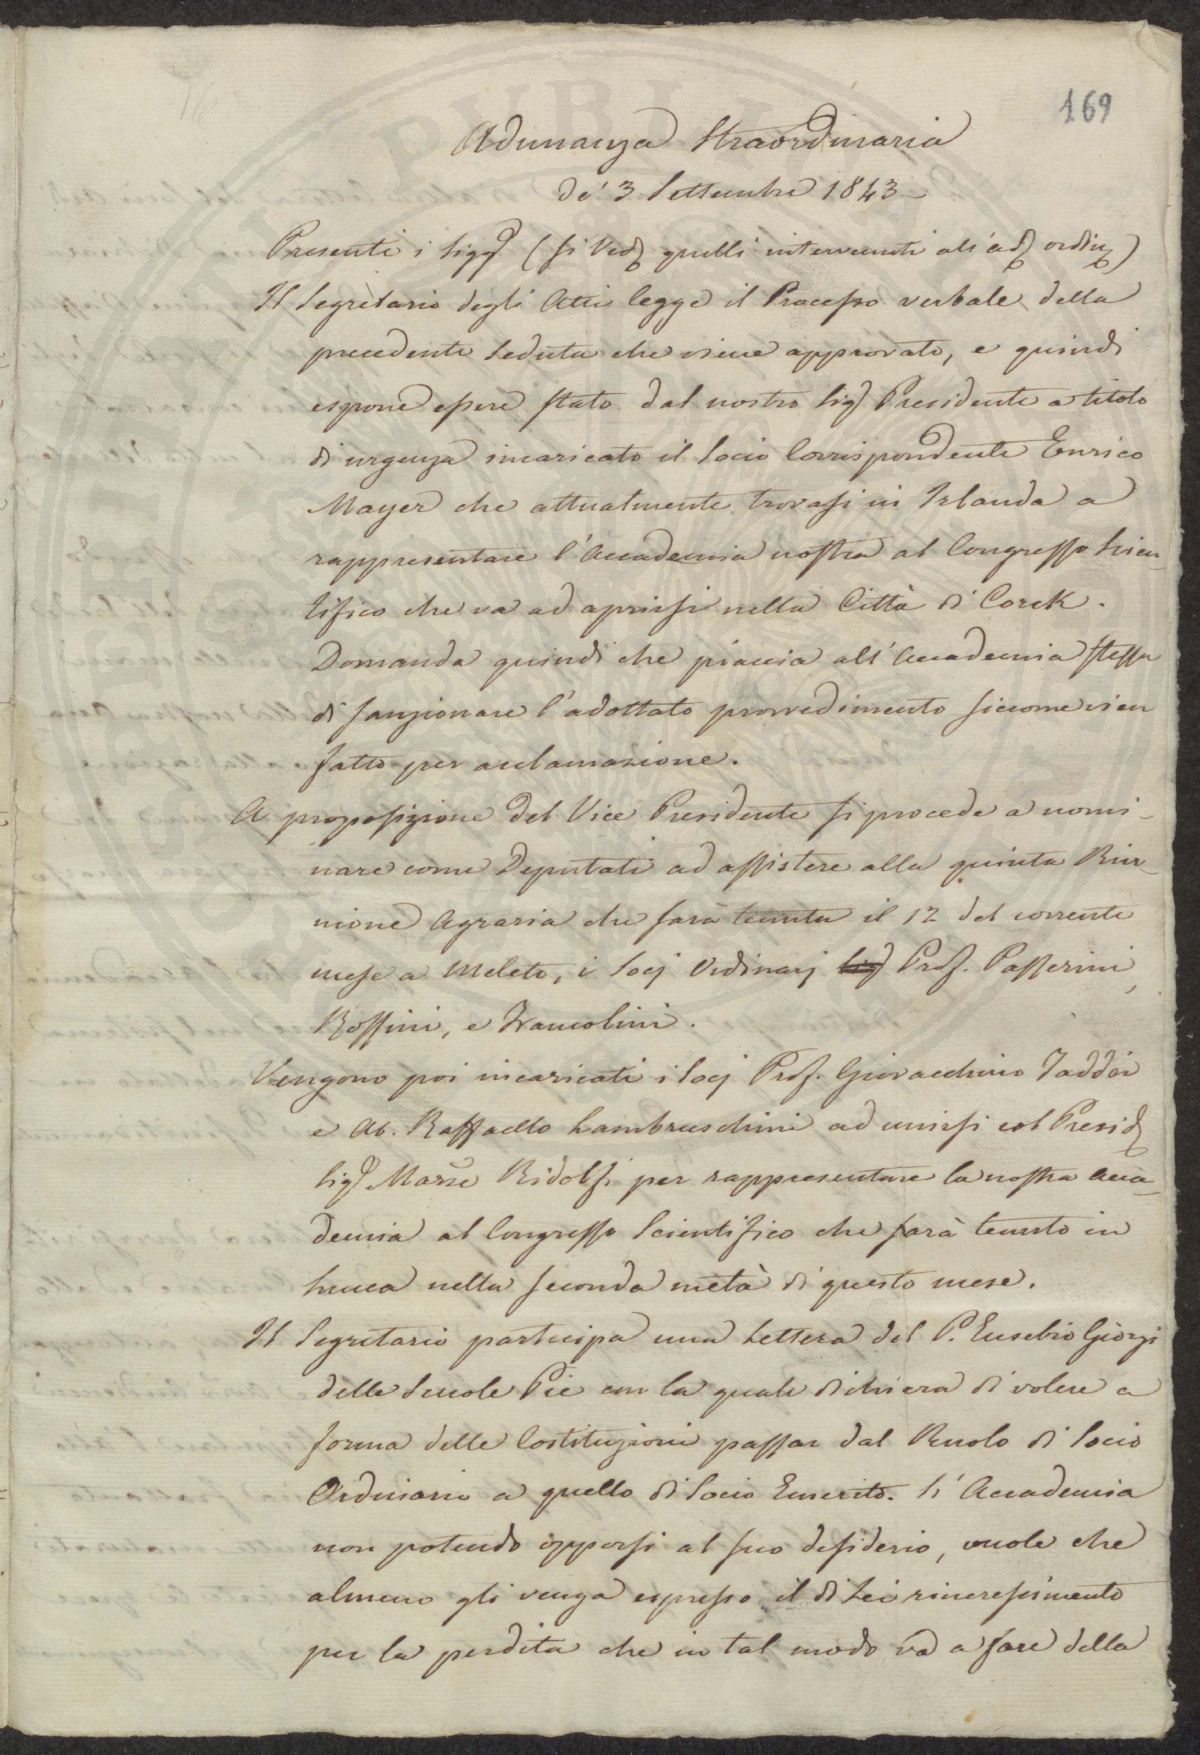 169
Adunanza Straordinaria
de' 3 Settembre 1843
Presenti i Sigg. (si Ved. quelli intervenuti all'ad. ordin.)
Il Segretario degli Atti legge il Processo verbale della
precedente seduta che viene approvato, e quindi
espone essere stato dal nostro Sig. Presidente a titolo
di urgenza incaricato il Socio Corrispondente Enrico
Mayer che attualmente trovasi in Irlanda a
rappresentare l'Accademia nostra al Congresso Scien-
tifico che va ad aprirsi nella Città di Corck.
Domanda quindi che piaccia all'Accademia stessa
di sanzionare l'adottato provvedimento siccome vien
fatto per acclamazione.
A proposizione del Vice Presidente si procede a nomi-
nare come Deputati ad assistere alla quinta Riu-
nione Agraria che sarà tenuta il 12 del corrente
mese a Meleto, i Socj Ordinarj Sig. Prof. Passerini,
Roffini, e Francolini.
Vengono poi incaricati i Socj Prof. Giovacchino Taddei
e Ab. Raffaello Lambruschini ad unirsi col Presid.
Sig. Marse Ridolfi per rappresentare la nostra Acca-
demia al Congresso Scientifico che sarà tenuto in
Lucca nella seconda metà di questo mese.
Il Segretario partecipa una Lettera del P. Eusebio Giorgi
delle Scuole Pie con la quale dichiara di volere a
forma delle Costituzioni passar dal Ruolo di Socio
Ordinario a quello di Socio Emerito. L'Accademia
non potendo opporsi al suo desiderio, vuole che
almeno gli venga espresso il di Lei rincrescimento
per la perdita che in tal modo va a fare della